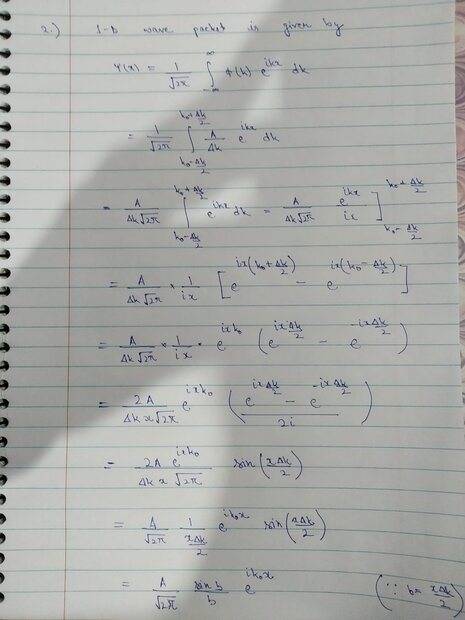 2.) 1-D wave packet is given by
Ψ(x) = 1/√2π ∫_{-∞}^{∞} φ(k) e^{ikx} dk
= 1/√2π ∫_{k₀-Δk/2}^{k₀+Δk/2} A/Δk e^{ikx} dk
= A/(Δk√2π) ∫_{k₀-Δk/2}^{k₀+Δk/2} e^{ikx} dk = A/(Δk√2π) e^{ikx}/ix ]_{k₀-Δk/2}^{k₀+Δk/2}
= A/(Δk√2π) × 1/ix [ e^{ix(k₀+Δk/2)} - e^{ix(k₀-Δk/2)} ]
= A/(Δk√2π) × 1/ix × e^{ixk₀} ( e^{ixΔk/2} - e^{-ixΔk/2} )
= 2A/(Δk x√2π) e^{ixk₀} ( (e^{ixΔk/2} - e^{-ixΔk/2})/2i )
= 2A e^{ixk₀}/(Δk x √2π) sin(xΔk/2)
= A/√2π 1/(xΔk/2) e^{ik₀x} sin(xΔk/2)
= A/√2π sin b/b e^{ik₀x} (∵ b = xΔk/2)